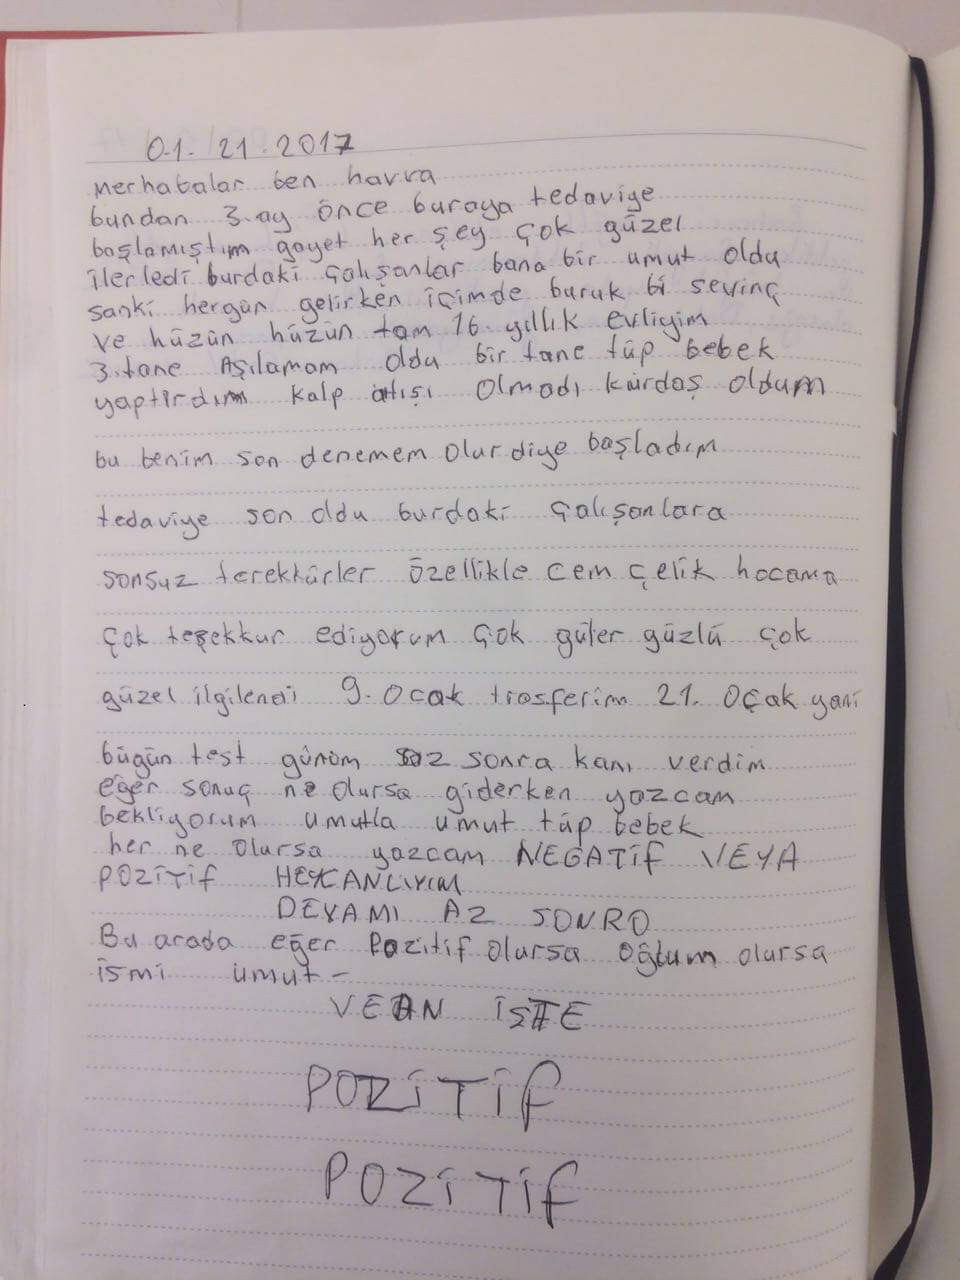 01.21.2017
Merhabalar ben havva
bundan 3.ay önce buraya tedaviye
başlamıştım gayet her şey çok güzel
ilerledi burdaki çalışanlar bana bir umut oldu
sanki hergün gelirken içimde buruk bi sevinç
ve hüzün hüzün tam 16.yıllık evliyim
3.tane Aşılamam oldu bir tane tüp bebek
yaptırdım kalp atışı olmadı kürdaş oldum
bu benim son denemem olur diye başladım
tedaviye son oldu burdaki çalışanlara
sonsuz terekkürler özellikle cem çelik hocama
çok teşekkur ediyorum çok güler güzlü çok
güzel ilgilendi 9.Ocak trosferim 21.Oçak yani
bügün test günüm az sonra kanı verdim
eğer sonuç ne olursa giderken yazcam
bekliyorum umutla umut tüp bebek
her ne olursa yazcam NEGATİF VEYA
POZİTİF HEYCANLIYIM
DEVAMI AZ SONRO
Bu arada eğer Pozitif olursa oğlum olursa
ismi umut-
VE AN İŞTE
POZİTİF
POZİTİF